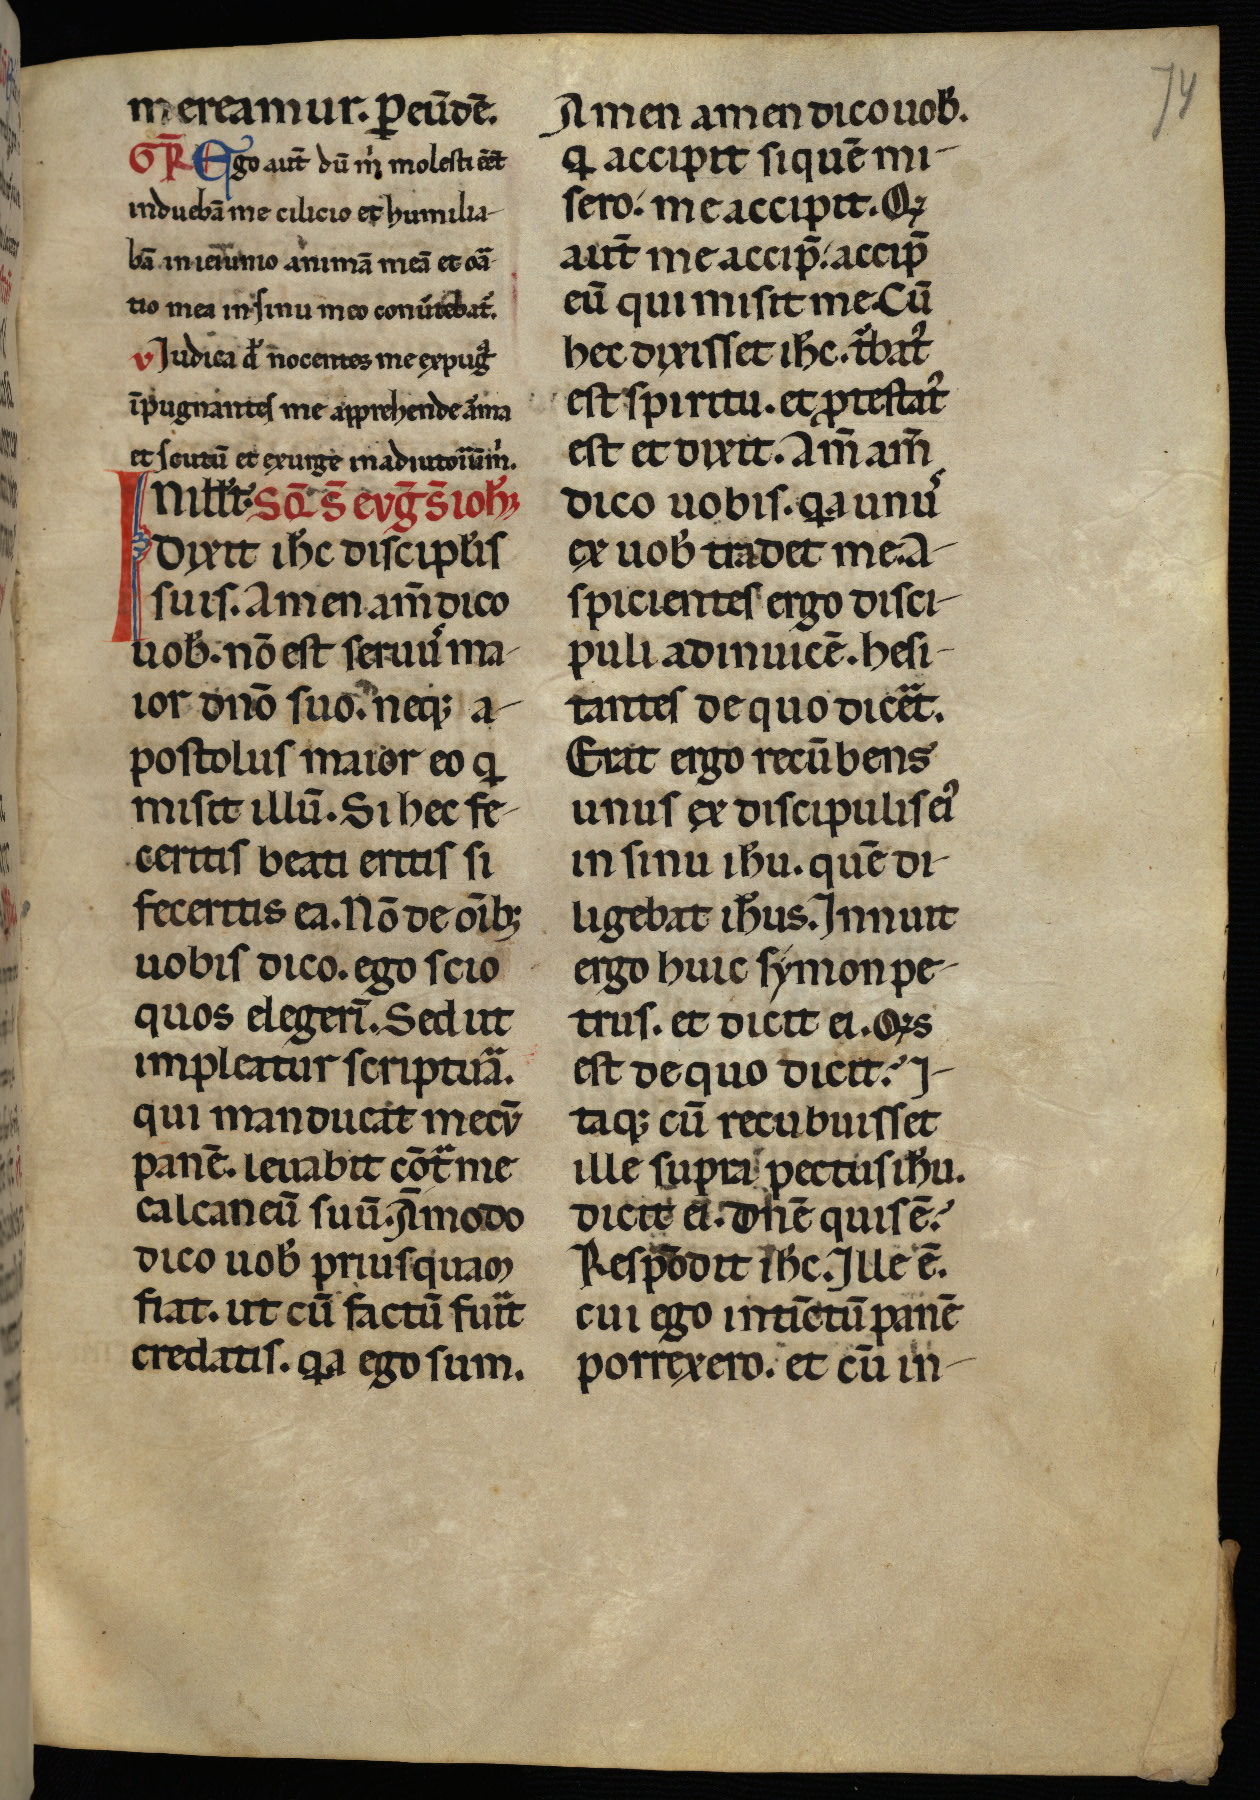 mereamur. Ꝑ eūdē.
GR̄ Ego aut̄ dū m̄ molesti eēt
induebā me cilicio et humilia-
bā in ieiunio animā meā et oā-
tio mea in sinu meo conūtebat̄.
v Judica d̄ nocentes me expug̃
īpugnantes me apprehende arma
et scutū et exurge in adiutoriū m̄.
IN ill̄ t̄. SCD̄ S̄ EVḠ S̄ IOH̄
Dixit ih̄c discipl̄is
suis. Amen am̄ dico
uob̄. nō est seruus ma-
ior dn̄o suo. neq; a-
postolus maior eo q̄
misit illū. Si hec fe-
ceritis beati eritis si
feceritis ea. Nō de oīb;
uobis dico. ego scio
quos elegerī. Sed ut
impleatur scriptura.
qui manducat mecū
panē. leuabit cōtra me
calcaneū suū. Āmodo
dico uob̄ priusquam
fiat. ut cū factū fuīt
credatis. qa ego sum.
Amen amen dico uob̄.
q̄ accipit si quē mi-
sero. me accipit. Qꝫ
aut̄ me accip̄. accip̄
eū qui misit me. Cū
hec dixisset ih̄c. t̄bat᷒
est spiritu. et ꝓtestat᷒
est et dixit. Am̄ am̄
dico uobis. qa unus
ex uob̄ tradet me. A-
spicientes ergo disci-
puli adinuicē. hesi-
tantes de quo diceret.
Erat ergo recūbens
unus ex discipulis ei᷒
in sinu ih̄u. quē di-
ligebat ih̄us. Innuit
ergo huic symon pe-
trus. et dicit ei. Qꝫs
est de quo dicit? I-
taq; cū recubuisset
ille supra pectus ih̄u.
dicit ei. Dn̄e quis ē?
Respōdit ih̄c. Ille ē.
cui ego intīctū panē
porrexero. et cū in-
74